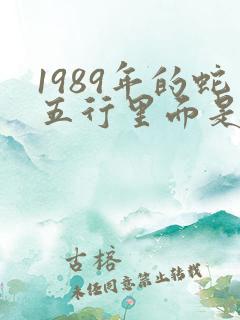 1989年的蛇
五行里而是
古榕
未经同意禁止转载